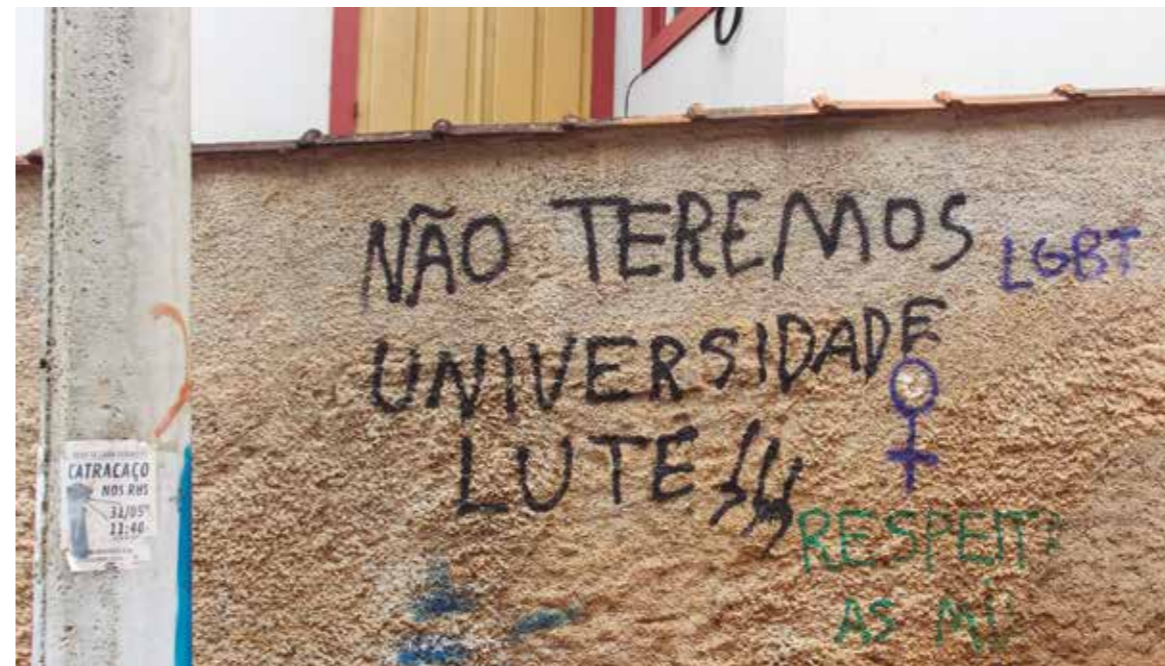 NÃO TEREMOS
UNIVERSIDADE
LUTE
LGBT
RESPEIT
AS MU
CATRACAÇO
NOS RUS
31/05
11:40